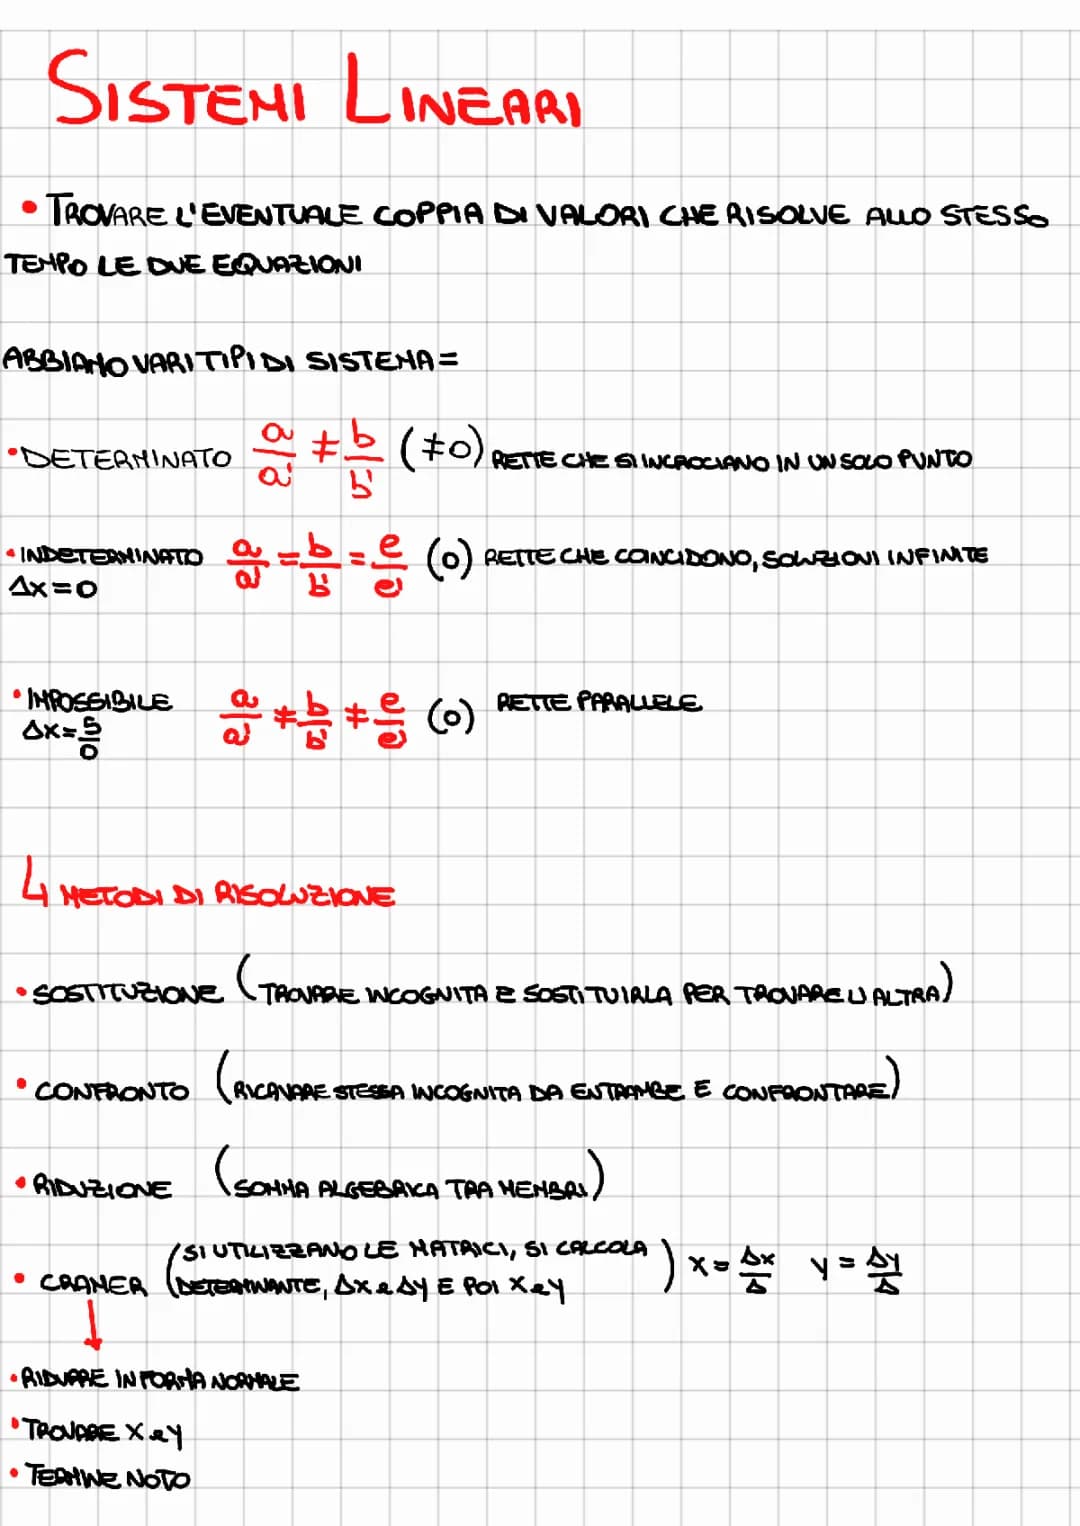 SISTEMI LINEARI
• TROVARE L'EVENTUALE COPPIA DI VALORI CHE RISOLVE ALLO STESSO
TEMPO LE DUE EQUAZIONI
ABBIAMO VARI TIPI DI SISTEMA =
• DETERMINATO a/a' ≠ b/b' (≠0) RETTE CHE SI INCROCIANO IN UN SOLO PUNTO
• INDETERMINATO a/a' = b/b' = c/c' (0) RETTE CHE COINCIDONO, SOLUZIONI INFINITE
Δx=0
• IMPOSSIBILE a/a' ≠ b/b' ≠ c/c' (0) RETTE PARALLELE
Δx=5/0
4 METODI DI RISOLUZIONE
• SOSTITUZIONE (TROVARE INCOGNITA E SOSTITUIRLA PER TROVARE L'ALTRA)
• CONFRONTO (RICAVARE STESSA INCOGNITA DA ENTRAMBE E CONFRONTARE)
• RIDUZIONE (SOMMA ALGEBRICA TRA MEMBRI)
• CRAMER (SI UTILIZZANO LE MATRICI, SI CALCOLA
DETERMINANTE, Δx e Δy E POI x e y) x = Δx/Δ y = Δy/Δ
• RIDURRE IN FORMA NORMALE
• TROVARE x e y
• TERMINE NOTO